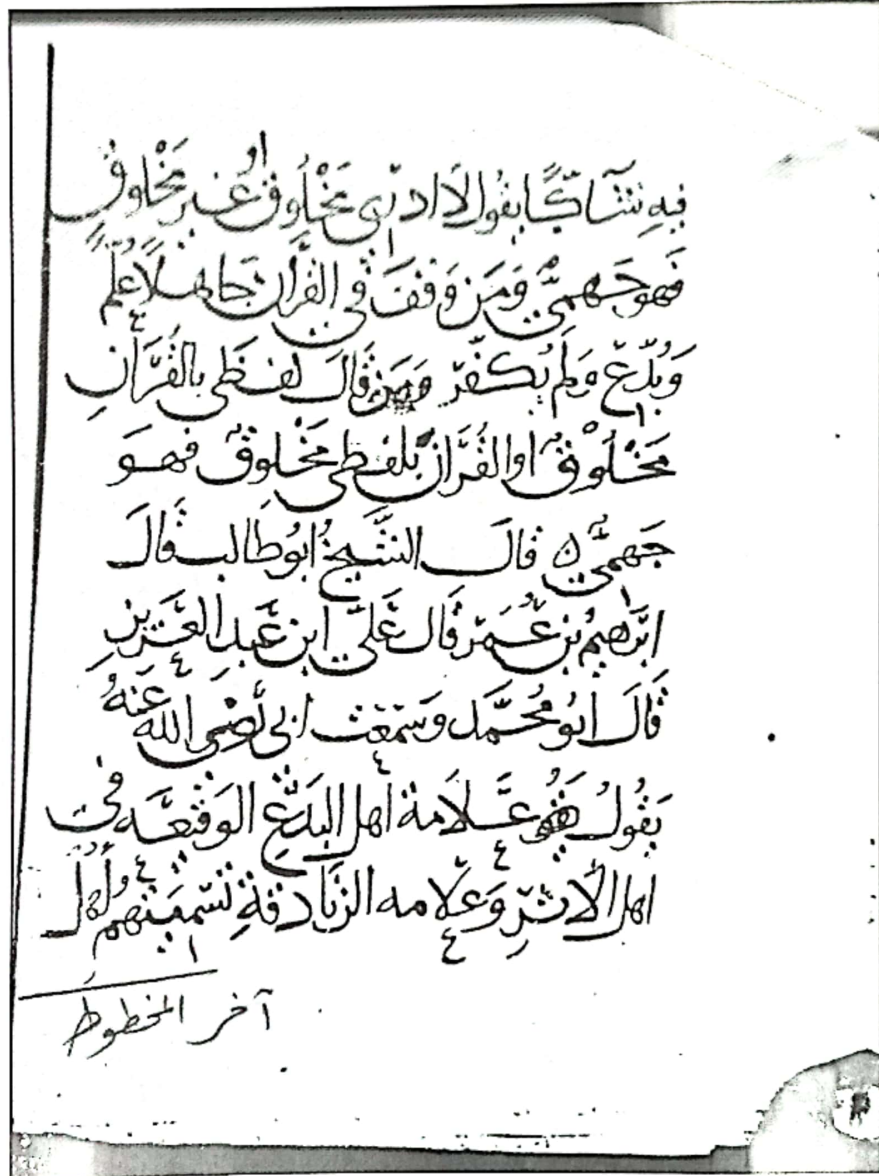 فِيهِ شَآكًّا يقُول لَا ادرِى مَخْلُوق اَو غير مَخْلوق
فَهو جَهمِيٌّ وَمَن وَقَفَ فِي القُرَّان جَاهلًا عُلِّمَ
وَبُدِّعَ وَلَم يُكَفَّر وَمَن قَالَ لَفظِى بالقُرَّانِ
مَخْلُوقٌ اَو القُرَّان بلفظِى مَخْلوقٌ فهوَ
جَهمِيٌّ ٥ قالَ الشَّيخُ ابُو طَالب قَالَ
ابرَاهِيمُ بن عُمَر قَال عَلِيّ ابن عَبد العَزيزِ
قَالَ اَبُو مُحَمَّد وَسَمعت ابى رَضِىَ اللَّه عَنهُ
يَقُولُ عَلَامة اَهل البدَعِ الوَقِيعَه فِى
اهل الاَثَرِ وَعَلَامه الزَّنَادقَةِ تَسمِيَتهم اَهل
آخر المخطوط